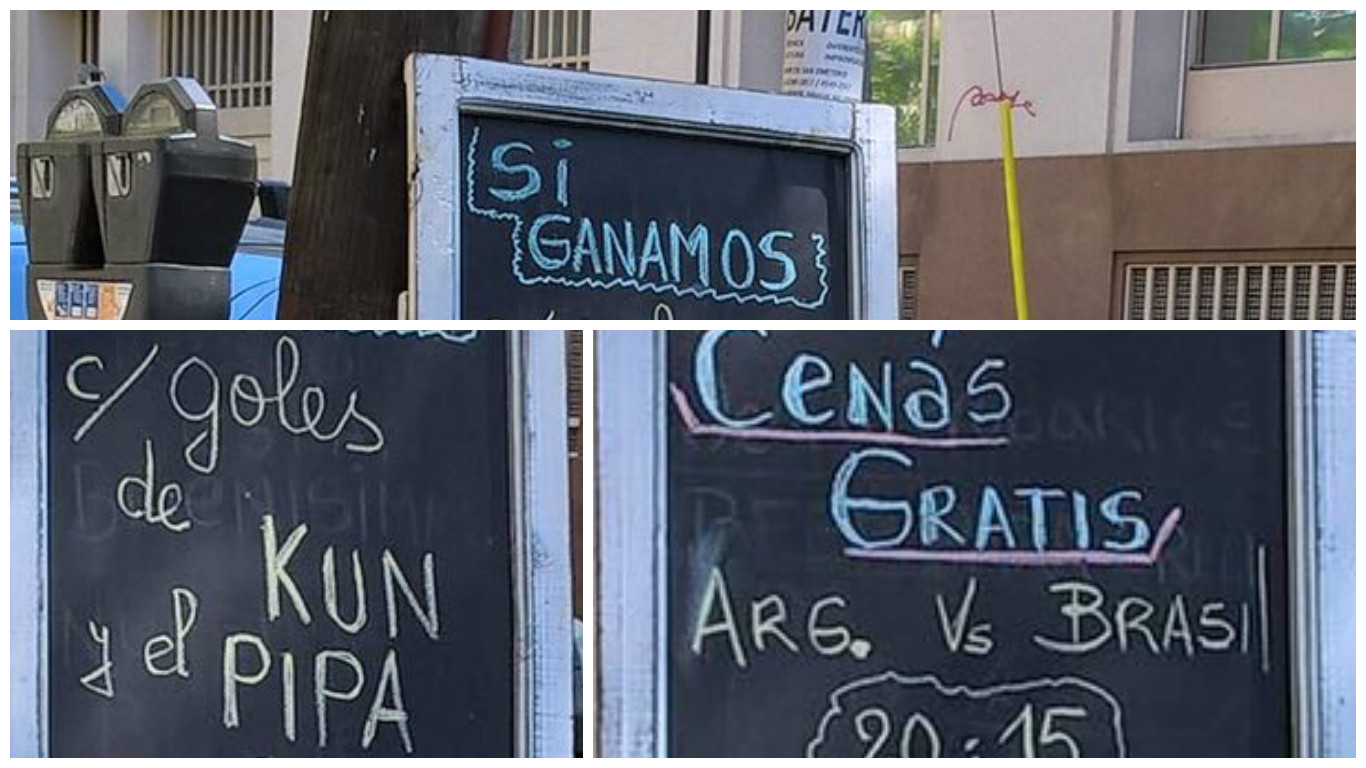 SI
GANAMOS
c/ goles
de
KUN
y el PIPA
Cenas
GRATIS
ARG. Vs BRASIL
20:15